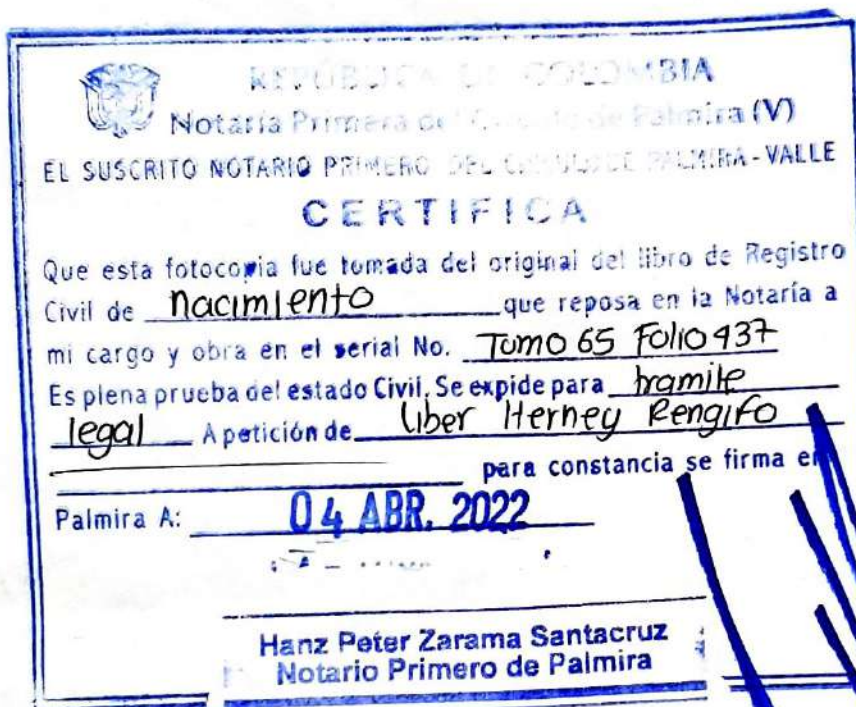 REPÚBLICA DE COLOMBIA
Notaría Primera del Circulo de Palmira (V)
EL SUSCRITO NOTARIO PRIMERO DEL CIRCULO DE PALMIRA - VALLE
CERTIFICA
Que esta fotocopia fue tomada del original del libro de Registro
Civil de nacimiento que reposa en la Notaría a
mi cargo y obra en el serial No. Tomo 65 Folio 437
Es plena prueba del estado Civil. Se expide para tramite
legal A petición de Liber Herney Rengifo
para constancia se firma en
Palmira A: 04 ABR. 2022
Hanz Peter Zarama Santacruz
Notario Primero de Palmira